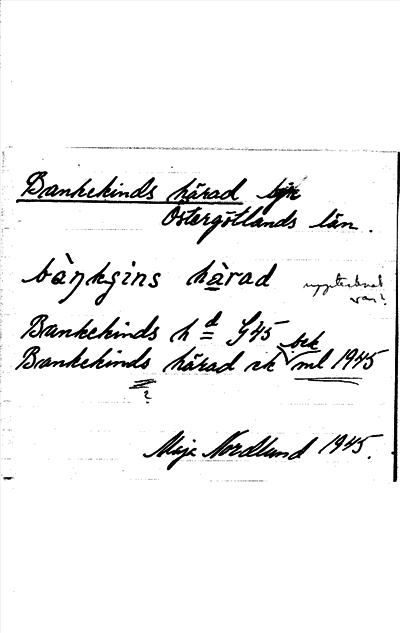 Bankekinds härad
Östergötlands län.
bàŋkɟins hàrad
upptecknat
var?
Bankekinds hd G45
Bankekinds härad ek bek ml 1945
?
Maja Nordlund 1945.